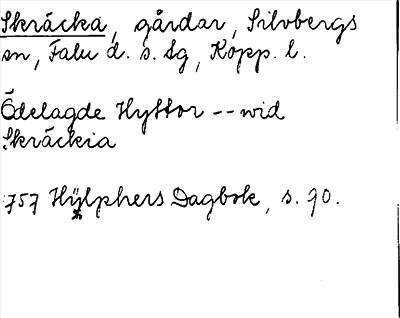 Skräcka, gårdar, Silvbergs
sn, Falu d. s. lg, Kopp. l.
Ödelagde Hyttor -- wid
Skräckia
1757 Hÿlphers Dagbok, s. 90.